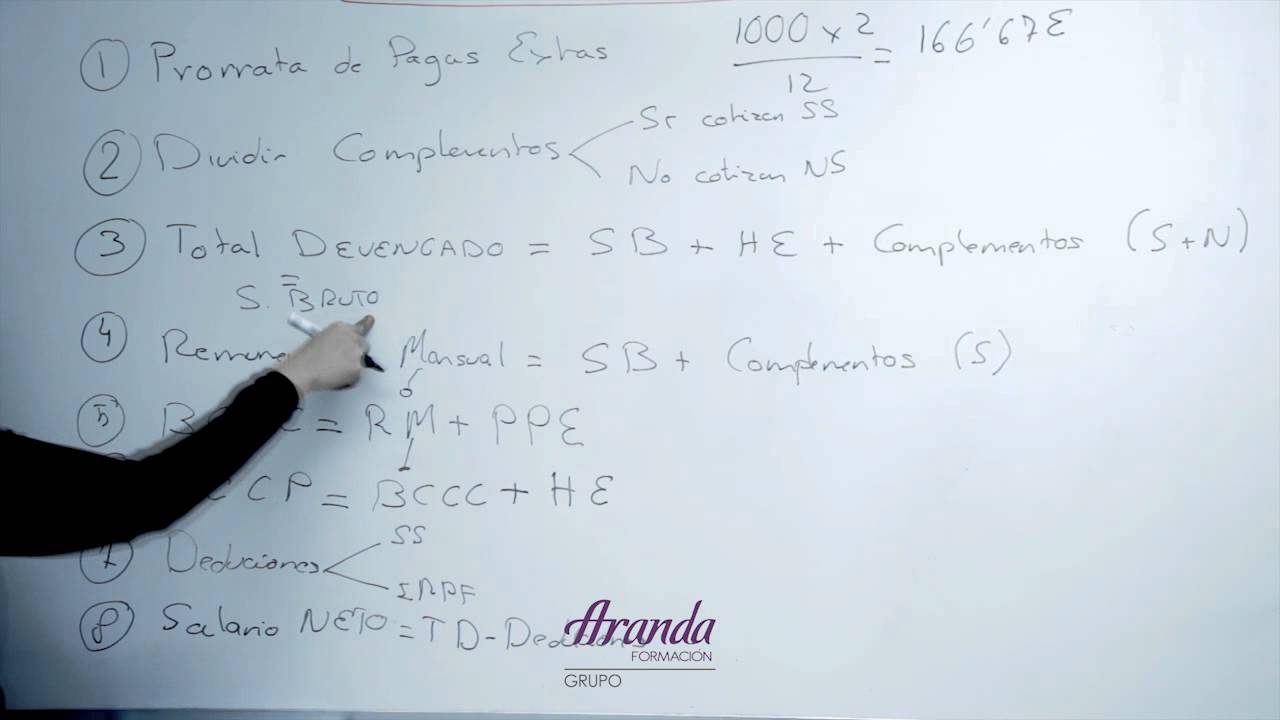 1 Prorrata de Pagas Extras 1000 x 2 / 12 = 166'67€
2 Dividir Complementos
Si cotizan SS
No cotizan NS
3 Total DEVENGADO = SB + HE + Complementos (S+N)
= S. BRUTO
4 Mensual = SB + Complementos (S)
5 = RM + PPE
CCP = BCCC + HE
7 Deduciones
SS
IRPF
8 Salario NETO = TD - Deduciones
Aranda
FORMACIÓN
GRUPO